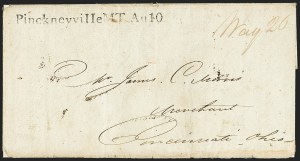 Pinckneyville MT. Au10
Way 26
Mr James C. Morris
Merchant
Cincinnati Ohio